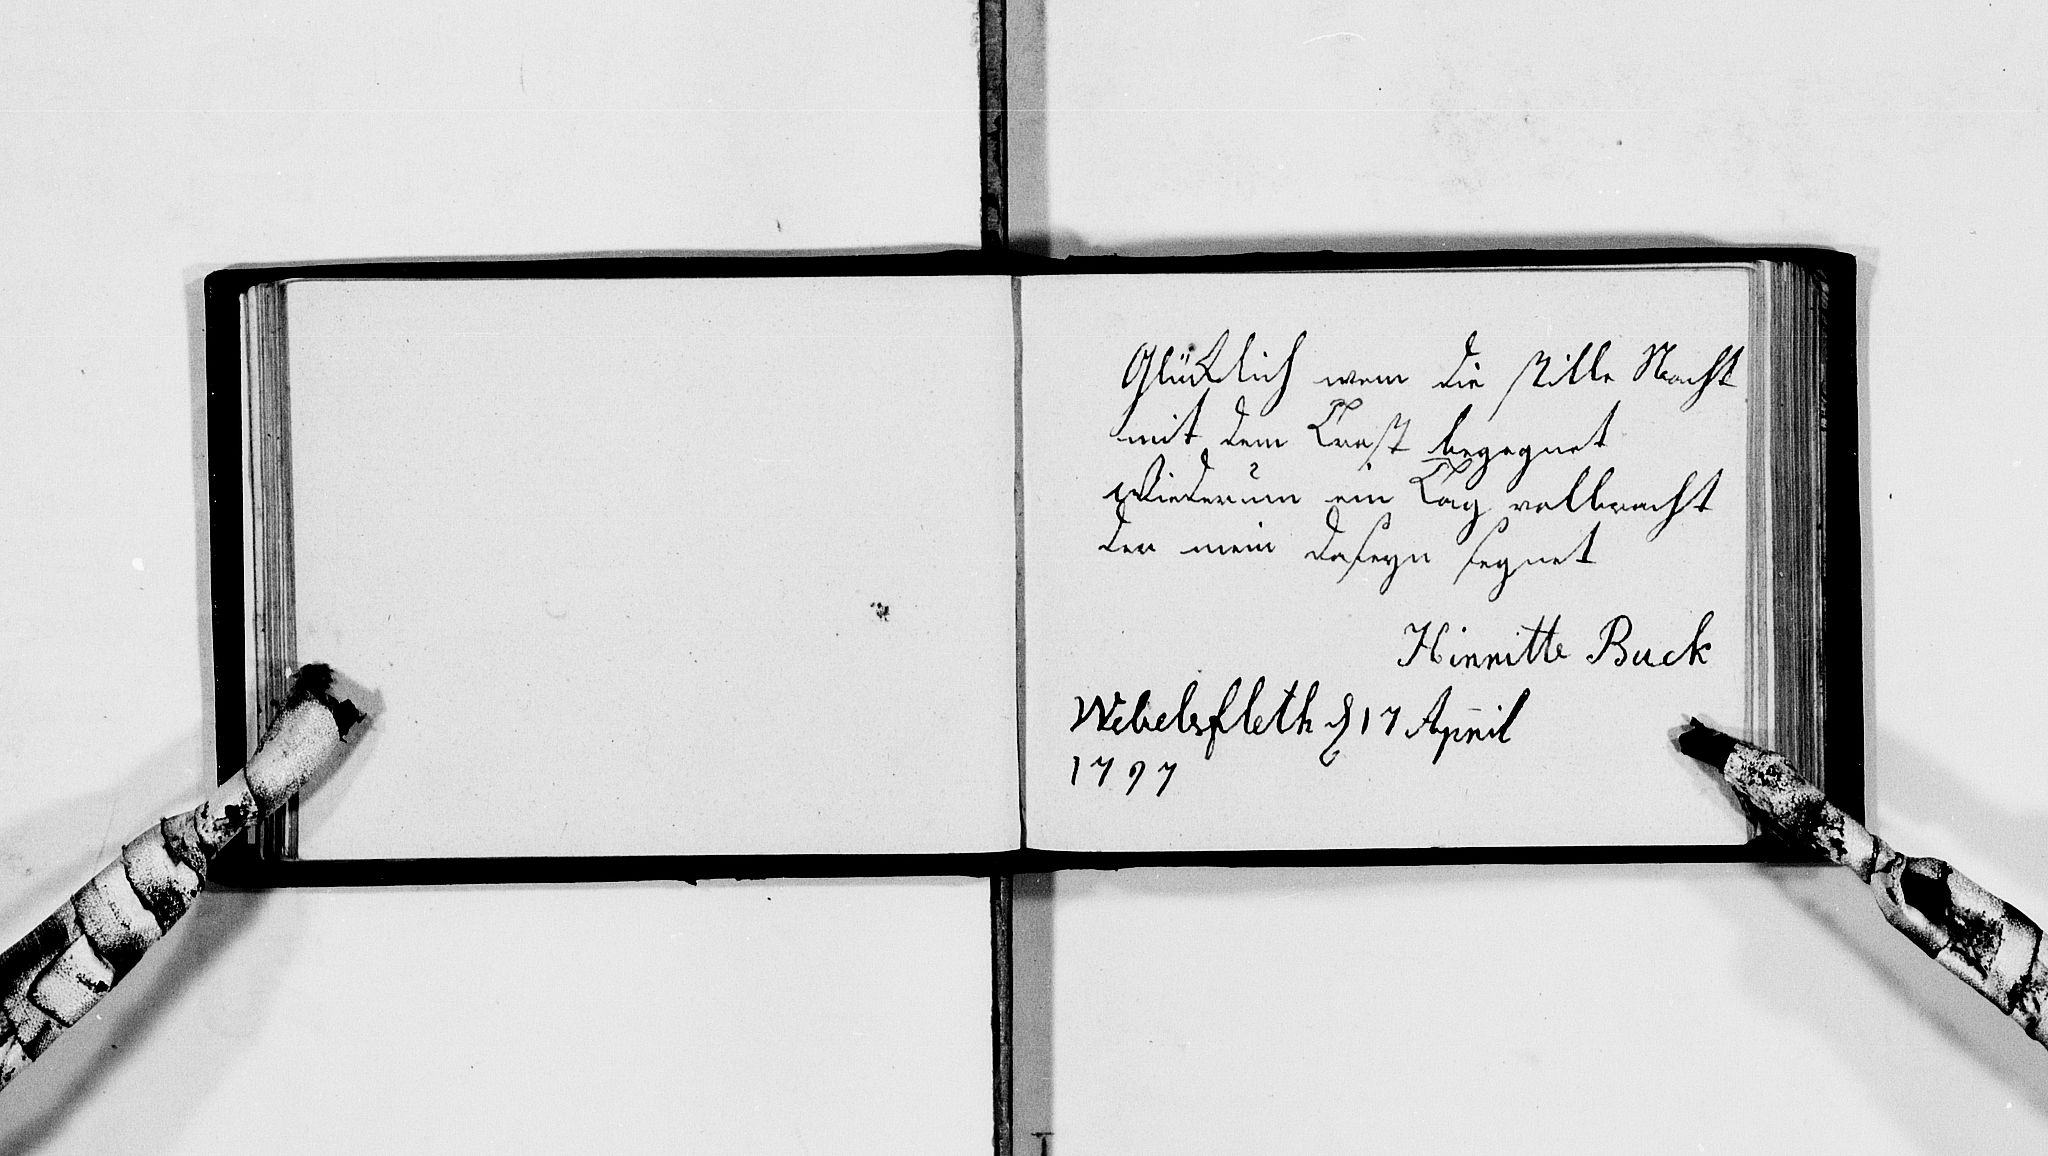 Glücklich wem die stille Nacht
mit dem Trost begegnet
Wiederum ein Tag vollbracht
der mein daseyn segnet
Hinritte Buck
Webelsfleth d 17 April
1797